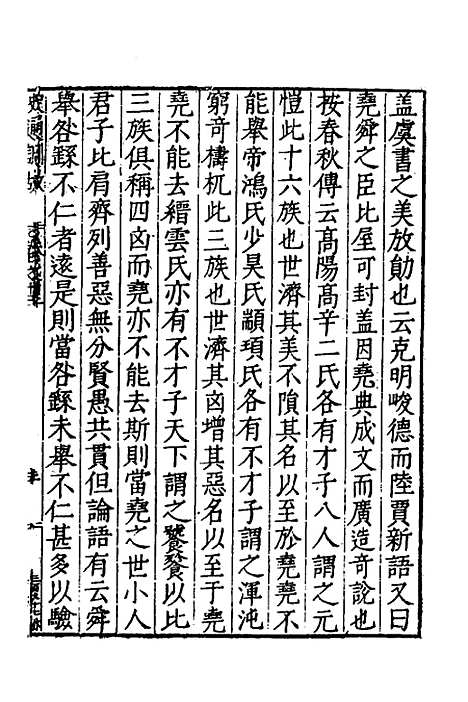 盖虞書之美放勛也云克明峻德而陸賈新語又曰
堯舜之臣比屋可封盖因堯典成文而廣造奇說也
按春秋傳云髙陽髙辛二氏各有才子八人謂之元
愷此十六族也世濟其美不隕其名以至於堯堯不
能舉帝鴻氏少昊氏顓頊氏各有不才子謂之渾沌
窮奇檮杌此三族也世濟其凶增其惡名以至于堯
堯不能去縉雲氏亦有不才子天下謂之饕餮以比
三族俱稱四凶而堯亦不能去斯則當堯之世小人
君子比肩齊列善惡無分賢愚共貫但論語有云舜
舉咎繇不仁者逺是則當咎繇未舉不仁甚多以驗